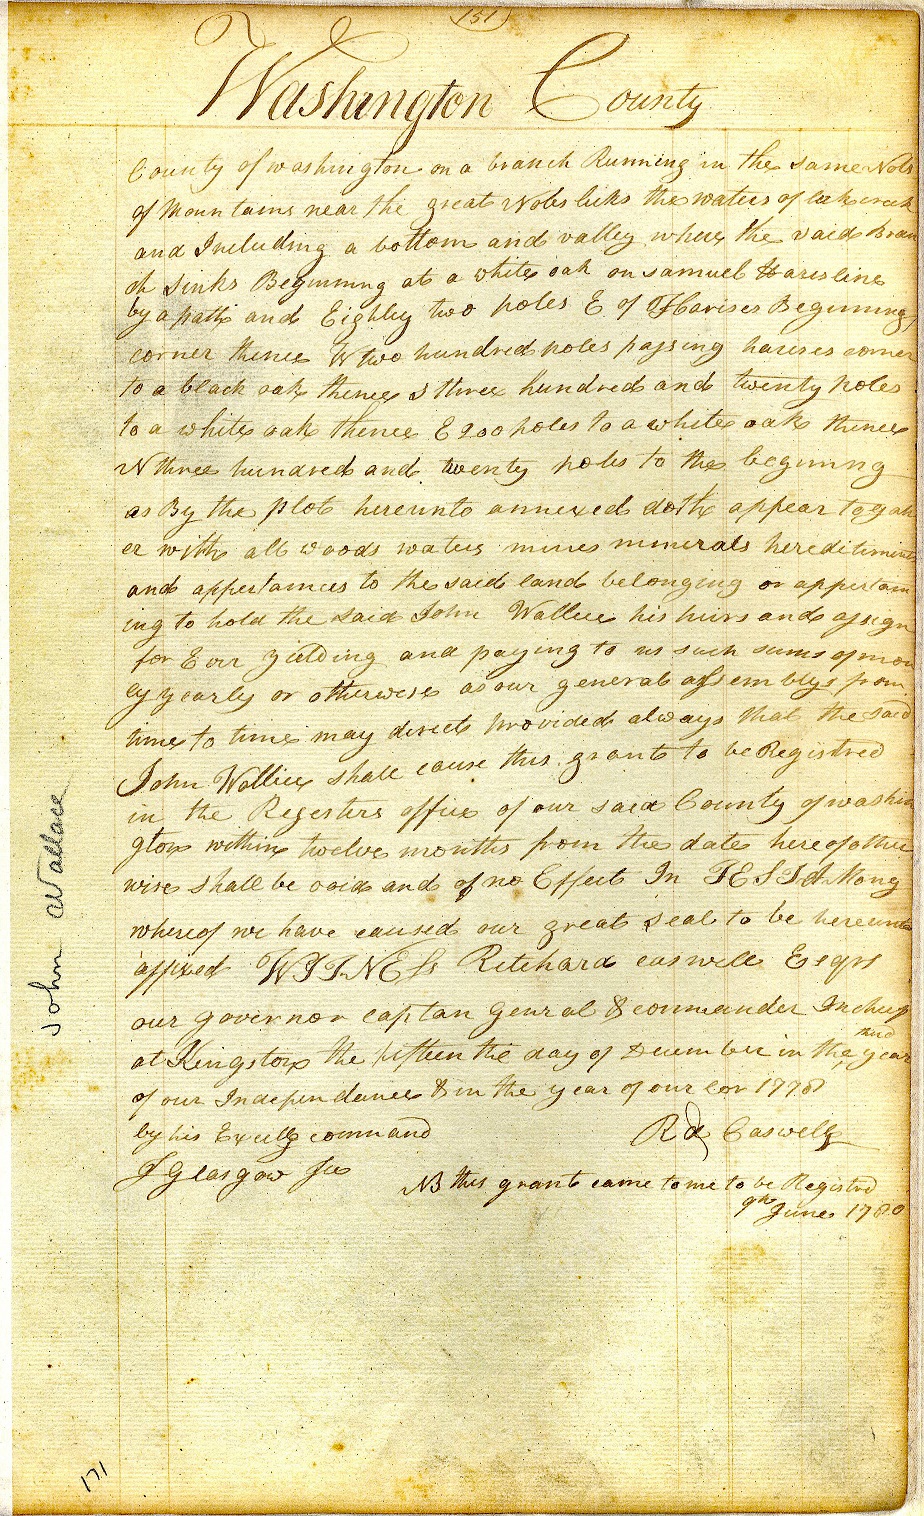 151
Washington County
County of washington on a branch Running in the same Nobs
of Mountains near the great Nobs licks the waters of lick creek
and Including a bottom and valley where the said Bran
ch sinks Beginning at a white oak on samuel Harises line
by a path and Eighty two poles E of Harises Beginning
corner thence W two hundred poles passing harises corner
to a black oak thence S three hundred and twenty poles
to a white oak thence E 200 poles to a white oak thence
N three hundred and twenty poles to the begining
as By the plot hereunto annexed doth appear togath
er with all woods waters mines minerals hereditiments
and appertances to the said land belonging or appertain
ing to hold the said John Wallice his heirs and assign
for Ever yielding and paying to us such sums of mon
ey yearly or otherwise as our general assemblys from
time to time may direct provided always that the said
John Wallice shall cause this grant to be Registred
in the Registers office of our said County of washin
gton within twelve months from the date hereof other
wise shall be void and of no Effect In TESTAMony
whereof we have caused our great seal to be hereunto
affixed WITNESs Ritchard caswell Esqrs
our governor captan Genral & commander In cheif
at Kingston the fifteenth day of December in the 3rd year
of our Independance & in the year of our Lor 1778
by his Excellcy command
Rd Caswell
J Glasgow Sec
NB this grant came to me to be Registred
9th June 1780
John Wallace
171